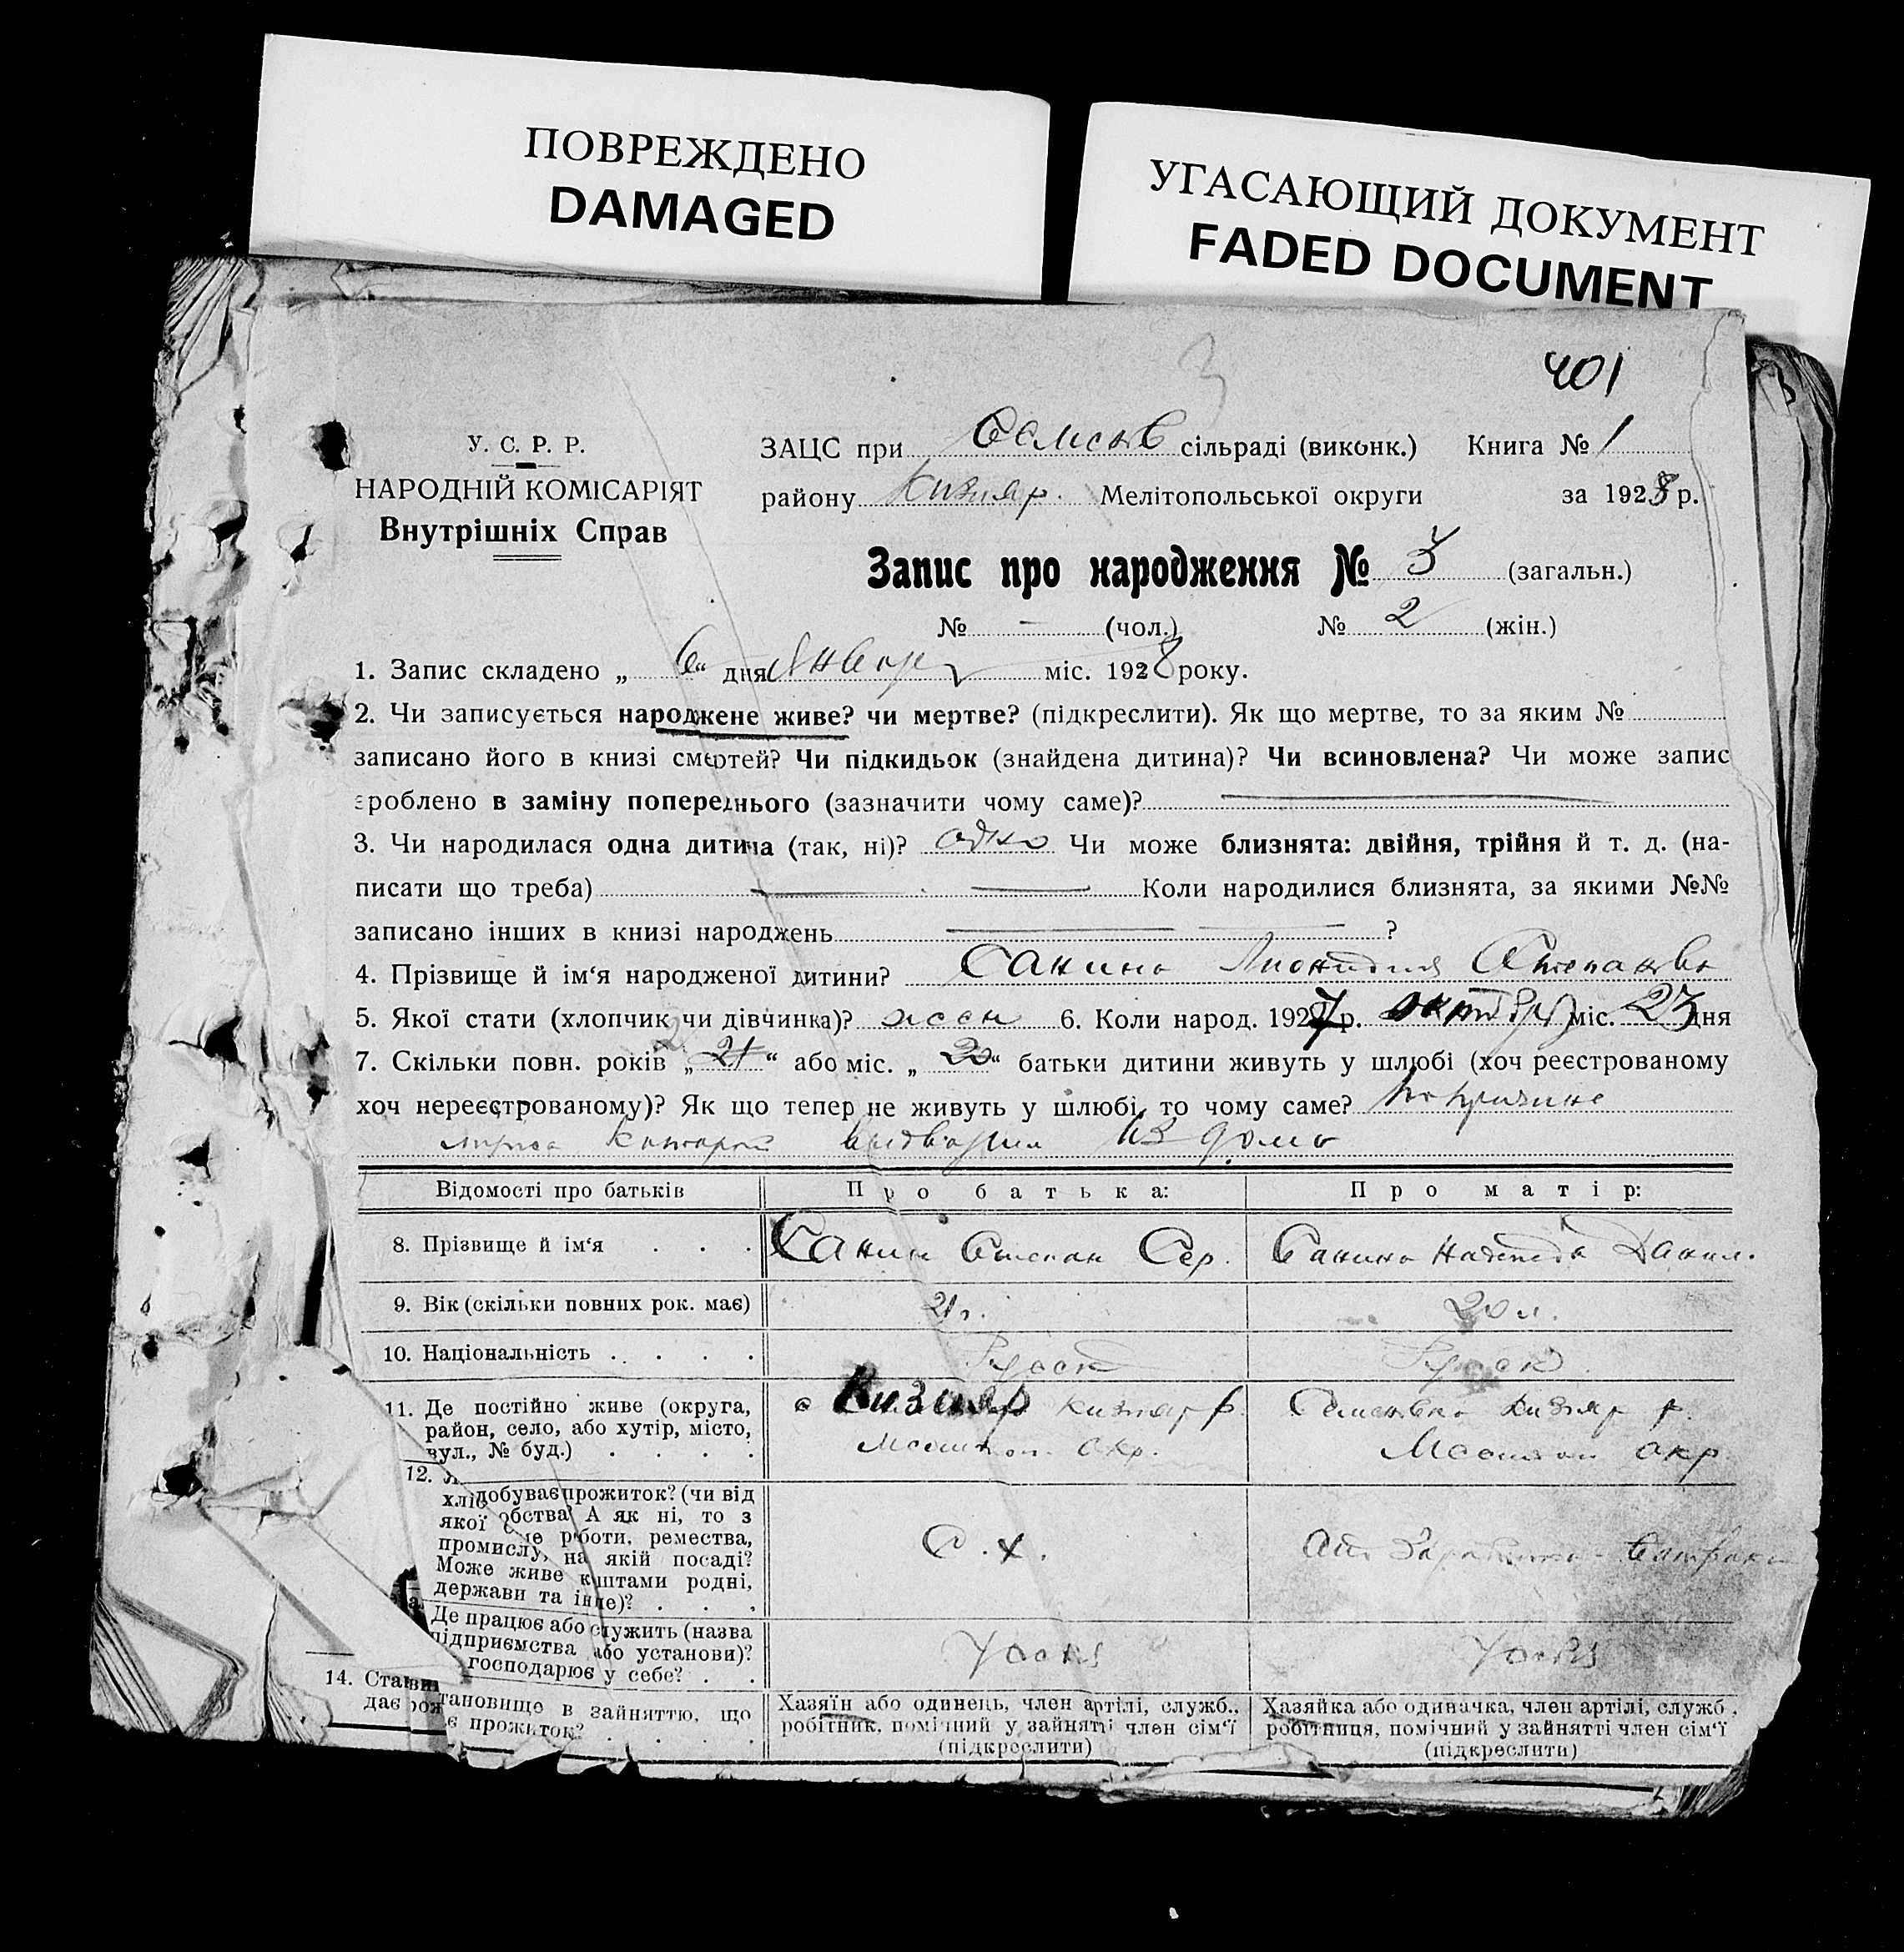 ПОВРЕЖДЕНО
DAMAGED
УГАСАЮЩИЙ ДОКУМЕНТ
FADED DOCUMENT
401
У. С. Р. Р.
НАРОДНІЙ КОМІСАРІЯТ
Внутрішніх Справ
ЗАЦС при сільраді (виконк.) Книга № 1
району Кизияр. Мелітопольської округи за 1928 р.
Запис про народження № 3 (загальн.)
№ — (чол.) № 2 (жін.)
1. Запис складено „ 6 “ дня Января міс. 1928 року.
2. Чи записується народжене живе? чи мертве? (підкреслити). Як що мертве, то за яким №
записано його в книзі смертей? Чи підкидьок (знайдена дитина)? Чи всиновлена? Чи може запис
зроблено в заміну попереднього (зазначити чому саме)?
3. Чи народилася одна дитина (так, ні)? одно Чи може близнята: двійня, трійня й т. д. (на-
писати що треба) Коли народилися близнята, за якими №№
записано інших в книзі народжень ?
4. Прізвище й ім‘я народженої дитини? Санина Степановна
5. Якої стати (хлопчик чи дівчинка)? жен 6. Коли народ. 1927 р. октября міс. 23 дня
7. Скільки повн. років „ 21 “ або міс. „ 20 “ батьки дитини живуть у шлюбі (хоч реєстрованому
хоч нереєстрованому)? Як що тепер не живуть у шлюбі, то чому саме? по причине
из дома
Відомості про батьків Про батька: Про матір:
8. Прізвище й ім‘я . . . Санин Степан Сер. Санина Надежда Данил.
9. Вік (скільки повних рок. має) 21 г. 20 л.
10. Національність . . . . . Русск Русск
11. Де постійно живе (округа,
район, село, або хутір, місто,
вул., № буд.) . . . .
с Кизияр Кизияр р.
Мелитоп. Окр.
Кизияр р.
Мелитоп окр.
12.
добуває прожиток? (чи від
хліб обства? А як ні, то з
якої роботи, ремества,
промислу, на якій посаді?
Може живе коштами родні,
держави та інше)? . . .
С. х.
Де працює або служить (назва
підприємства або установи)?
господарює у себе? . .
У себя У себя
14. Стан
становище в зайняттю, що
дає прожиток? . . . .
Хазяїн або одинець, член артілі, служб.,
робітник, помічний у зайнятті член сім‘ї
(підкреслити)
Хазяйка або одиначка, член артілі, служб.,
робітниця, помічний у зайнятті член сім‘ї
(підкреслити)